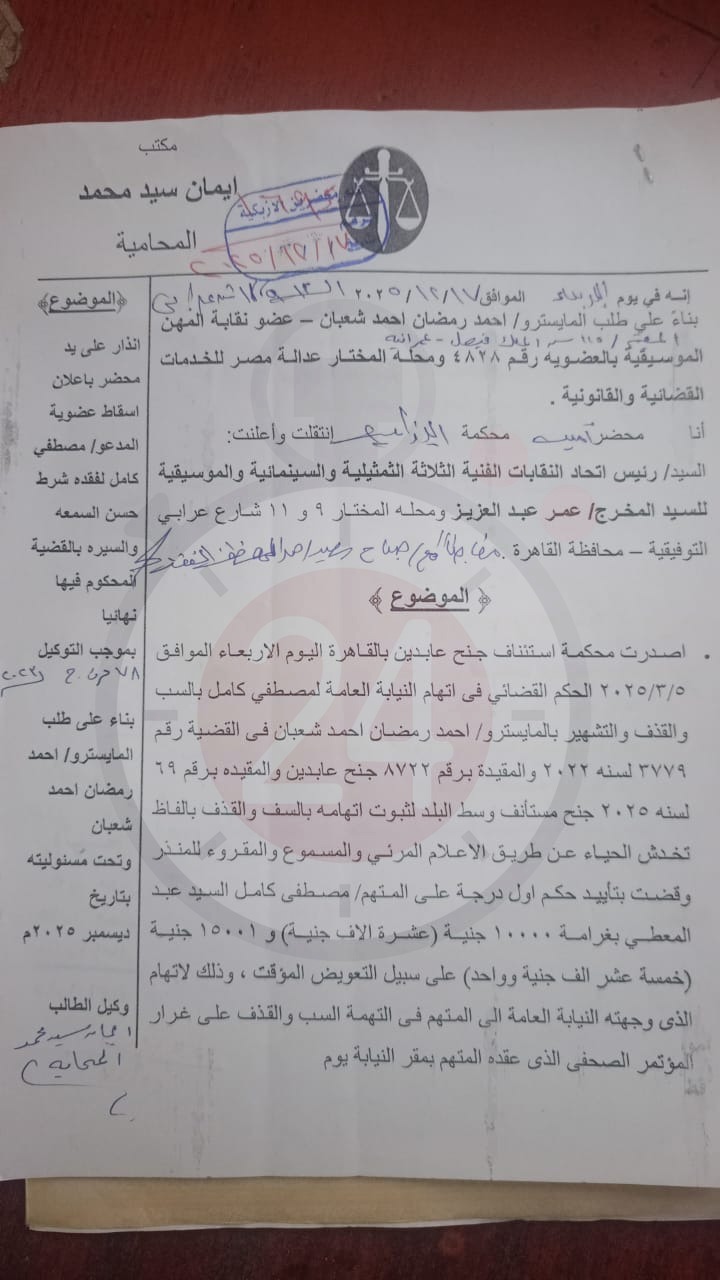 مكتب
ايمان سيد محمد
المحامية
محضرين الازبكية
٢٠٢٥/١٢/١٧
انه في يوم الاربعاء الموافق ٢٠٢٥/١٢/١٧
بناءً علي طلب المايسترو/ احمد رمضان احمد شعبان – عضو نقابة المهن
المقيم / ١١٥ الملك فيصل - عمرانيه
الموسيقية بالعضويه رقم ٤٨٢٨ ومحلة المختار عدالة مصر للخدمات
القضائية والقانونية .
أنا محضر محكمة انتقلت وأعلنت:
السيد/ رئيس اتحاد النقابات الفنية الثلاثة التمثيلية والسينمائية والموسيقية
للسيد المخرج/ عمر عبد العزيز ومحله المختار ٩ و ١١ شارع عرابي
التوفيقية – محافظة القاهرة .
﴿ الموضوع ﴾
اصدرت محكمة استئناف جنح عابدين بالقاهرة اليوم الاربعاء الموافق
٢٠٢٥/٣/٥ الحكم القضائي فى اتهام النيابة العامة لمصطفي كامل بالسب
والقذف والتشهير بالمايسترو/ احمد رمضان احمد شعبان فى القضية رقم
٣٧٧٩ لسنه ٢٠٢٢ والمقيدة برقم ٨٧٢٢ جنح عابدين والمقيده برقم ٦٩
لسنه ٢٠٢٥ جنح مستأنف وسط البلد لثبوت اتهامه بالسف والقذف بالفاظ
تخدش الحياء عن طريق الاعلام المرئي والمسموع والمقروء للمنذر
وقضت بتأييد حكم اول درجة على المتهم/ مصطفى كامل السيد عبد
المعطي بغرامة ١٠٠٠٠ جنية (عشرة الاف جنية) و ١٥٠٠١ جنية
(خمسة عشر الف جنية وواحد) على سبيل التعويض المؤقت ، وذلك لاتهام
الذى وجهته النيابة العامة الى المتهم فى التهمة السب والقذف على غرار
المؤتمر الصحفى الذى عقده المتهم بمقر النيابة يوم
﴿الموضوع﴾
انذار على يد
محضر باعلان
اسقاط عضوية
المدعو/ مصطفي
كامل لفقده شرط
حسن السمعه
والسيره بالقضية
المحكوم فيها
نهائيا
بموجب التوكيل
بناء على طلب
المايسترو/ احمد
رمضان احمد
شعبان
وتحت مسئوليته
بتاريخ
ديسمبر ٢٠٢٥م
وكيل الطالب
ايمان سيد محمد
المحاميه
24